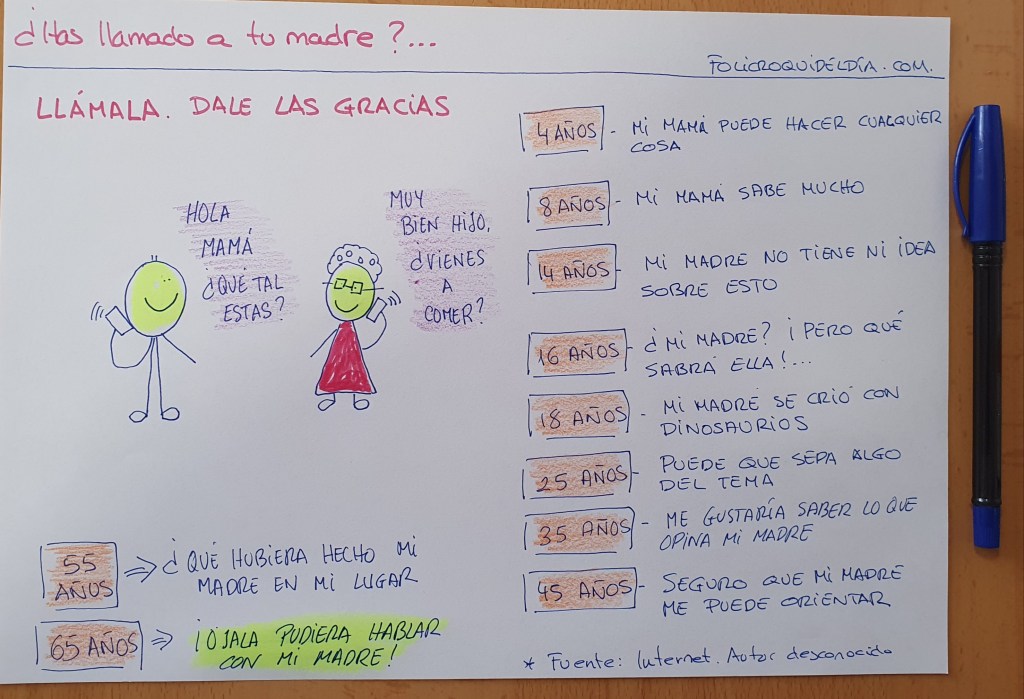 ¿Has llamado a tu madre?...
FOLICROQUIDELDÍA.COM.
LLÁMALA. DALE LAS GRACIAS
HOLA
MAMÁ
¿QUÉ TAL
ESTAS?
MUY
BIEN HIJO,
¿VIENES
A
COMER?
4 AÑOS - MI MAMÁ PUEDE HACER CUALQUIER
COSA
8 AÑOS - MI MAMÁ SABE MUCHO
14 AÑOS - MI MADRE NO TIENE NI IDEA
SOBRE ESTO
16 AÑOS - ¿MI MADRE? ¡PERO QUÉ
SABRÁ ELLA!...
18 AÑOS - MI MADRE SE CRIÓ CON
DINOSAURIOS
25 AÑOS - PUEDE QUE SEPA ALGO
DEL TEMA
35 AÑOS - ME GUSTARÍA SABER LO QUE
OPINA MI MADRE
45 AÑOS - SEGURO QUE MI MADRE
ME PUEDE ORIENTAR
55
AÑOS => ¿QUÉ HUBIERA HECHO MI
MADRE EN MI LUGAR
65 AÑOS => ¡OJALA PUDIERA HABLAR
CON MI MADRE!
* Fuente: Internet. Autor desconocido